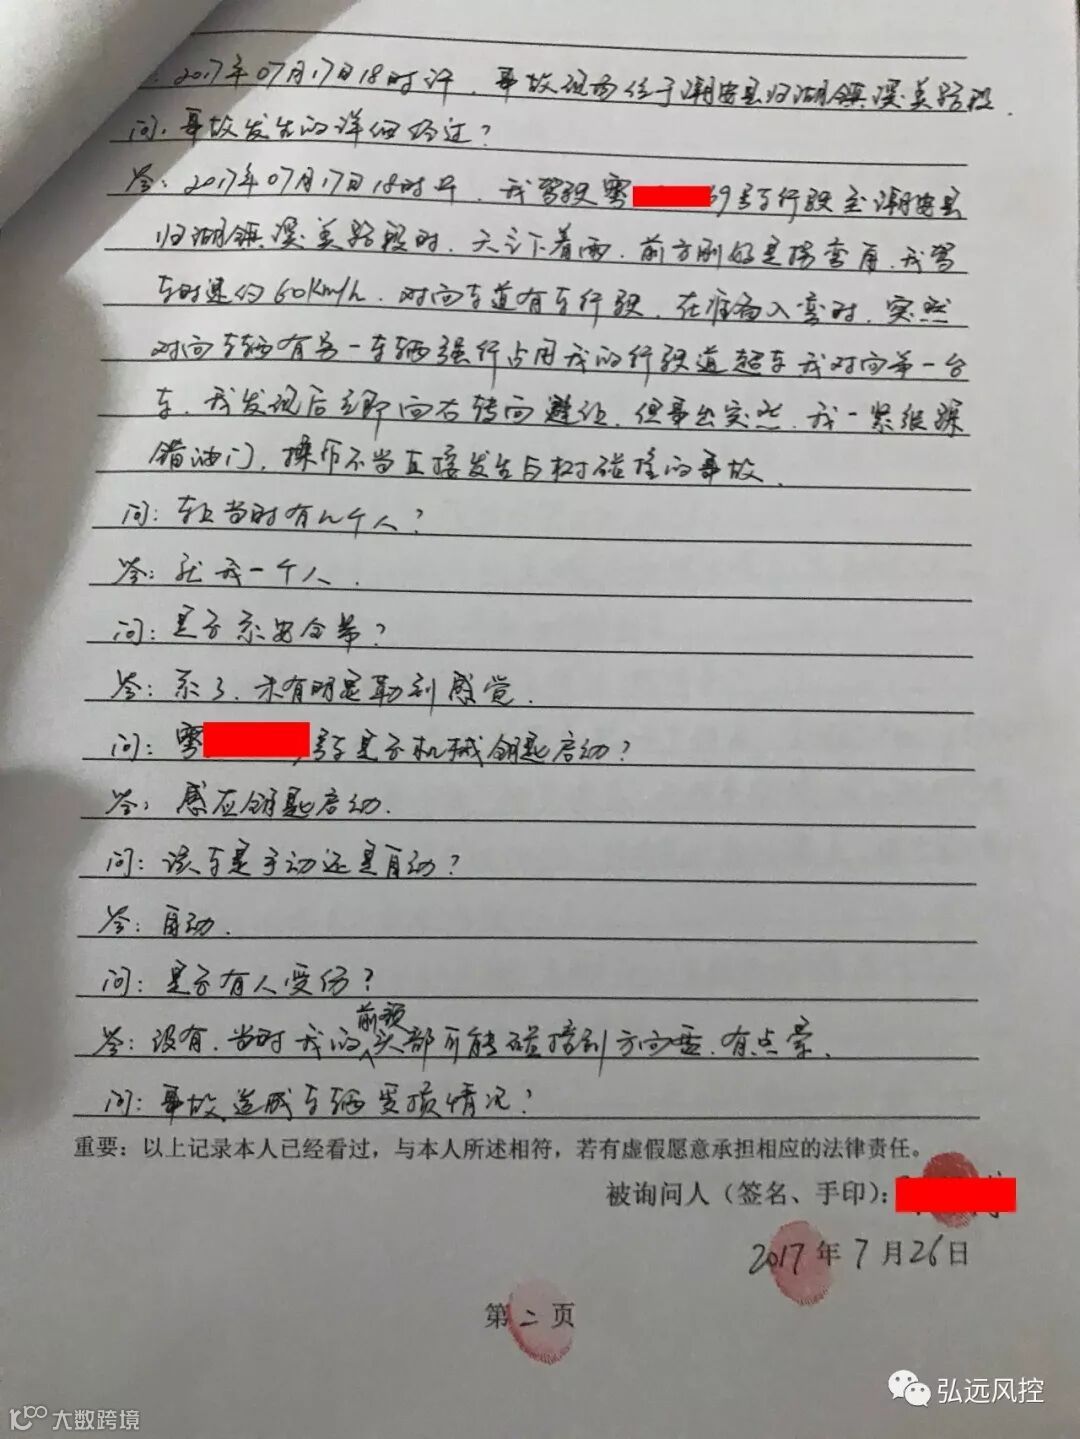 2017年07月17日18时许，事故现场位于潮安县归湖镇溪美路段．
问：事故发生的详细经过？
答：2017年07月17日18时许，我驾驶粤 69号车行驶至潮安县
归湖镇溪美路段时，天空下着雨，前方刚好是拐弯角，我驾
车时速约60Km/h，对向车道有车行驶，在准备入弯时，突然
对向车辆有另一车辆强行占用我的行驶道超车我对向第一台
车，我发现后立即向右转向避让，但事出突然，我一紧张踩
错油门，操作不当直接发生与树碰撞的事故．
问：车上当时有几个人？
答：就我一个人．
问：是否系安全带？
答：系了，未有明显勒到感觉．
问：粤 号车是否机械钥匙启动？
答：感应钥匙启动．
问：该车是手动还是自动？
答：自动．
问：是否有人受伤？
答：没有，当时我的前额头部可能碰撞到方向盘，有点晕．
问：事故造成车辆受损情况？
重要：以上记录本人已经看过，与本人所述相符，若有虚假愿意承担相应的法律责任。
被询问人（签名、手印）：
2017年7月26日
第二页
弘远风控
大数跨境